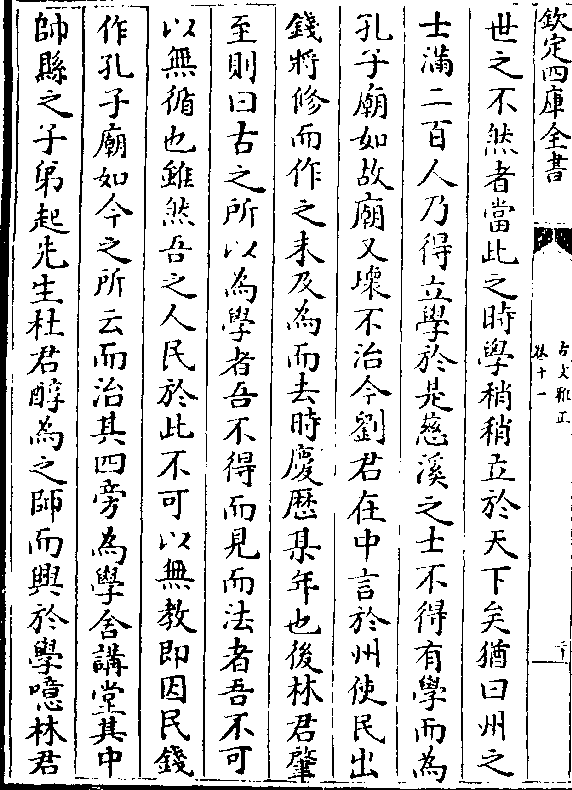 欽定四庫全書
古文雅正
卷十一
世之不然者當此之時學稍稍立於天下矣猶曰州之
士滿二百人乃得立學於是慈溪之士不得有學而為
孔子廟如故廟又壞不治今劉君在中言於州使民出
錢將修而作之未及為而去時慶歷某年也後林君肇
至則曰古之所以為學者吾不得而見而法者吾不可
以無循也雖然吾之人民於此不可以無教即因民錢
作孔子廟如今之所云而治其四旁為學舍講堂其中
帥縣之子弟起先生杜君醇為之師而興於學噫林君